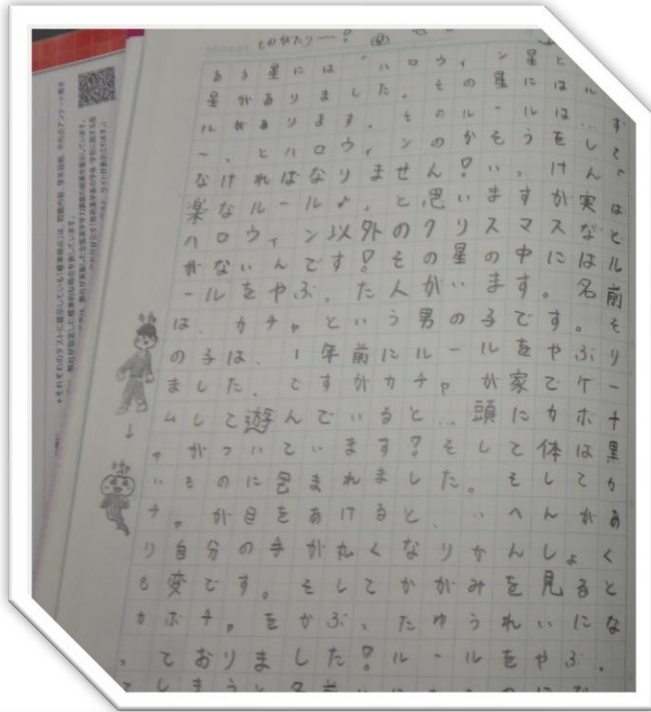 ものがたり〜!
ある星には「ハロウィン星と
星がありました。その星にはル
ルがあります。そのルールは…す
ー、とハロウィンのかそうをして
なければなりません!いっけん
楽なルール♪、と思いますが実は
ハロウィン以外のクリスマスなど
がないんです!その星の中にはル
ールをやぶった人がいます。名前
は、カチャという男の子です。そ
の子は、1年前にルールをやぶり
ました。ですがカチャが家でゲー
ムして遊んでいると…頭にカボチ
ャがついています?そして体は黒
いものに包まれました。そしてカ
チャが目をあけると、いへんがあ
り自分の手が丸くなりかんしょく
も変です。そしてかがみを見ると
カボチャをかぶったゆうれいにな
っておりました!ルールをやぶっ
てしまうと名前